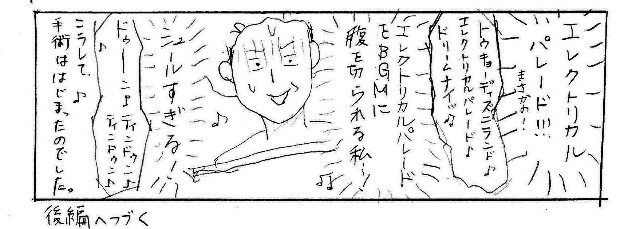 エレクトリカル
パレード!!!
まさかの!
トウキョーディズニーランド♪
エレクトリカルパレード♪
ドリームナイッ♪
エレクトリカルパレード
をBGMに
腹を切られる私〜!
シュールすぎる!
♪
ドゥーン♪ ティンドゥン♪
ティンドゥン♪
こうして、♪
手術ははじまったのでした。
後編へつづく